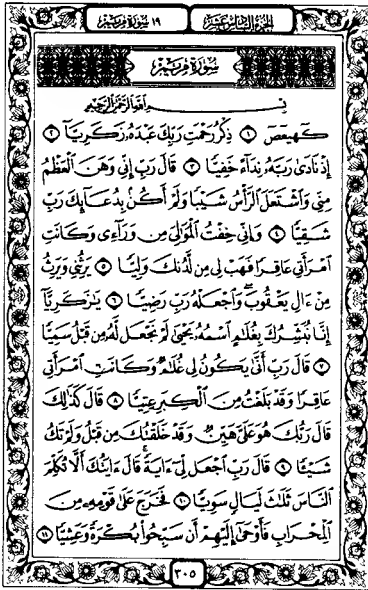 الجزء السادس عشر
١٩ سورة مريم
سورة مريم
بِسْمِ اللَّهِ الرَّحْمَٰنِ الرَّحِيمِ
كٓهيعٓصٓ ١ ذِكْرُ رَحْمَتِ رَبِّكَ عَبْدَهُۥ زَكَرِيَّآ ٢
إِذْ نَادَىٰ رَبَّهُۥ نِدَآءً خَفِيًّا ٣ قَالَ رَبِّ إِنِّى وَهَنَ ٱلْعَظْمُ
مِنِّى وَٱشْتَعَلَ ٱلرَّأْسُ شَيْبًا وَلَمْ أَكُنۢ بِدُعَآئِكَ رَبِّ
شَقِيًّا ٤ وَإِنِّى خِفْتُ ٱلْمَوَٰلِىَ مِن وَرَآءِى وَكَانَتِ
ٱمْرَأَتِى عَاقِرًا فَهَبْ لِى مِن لَّدُنكَ وَلِيًّا ٥ يَرِثُنِى وَيَرِثُ
مِنْ ءَالِ يَعْقُوبَ ۖ وَٱجْعَلْهُ رَبِّ رَضِيًّا ٦ يَٰزَكَرِيَّآ
إِنَّا نُبَشِّرُكَ بِغُلَٰمٍ ٱسْمُهُۥ يَحْيَىٰ لَمْ نَجْعَل لَّهُۥ مِن قَبْلُ سَمِيًّا
٧ قَالَ رَبِّ أَنَّىٰ يَكُونُ لِى غُلَٰمٌ وَكَانَتِ ٱمْرَأَتِى
عَاقِرًا وَقَدْ بَلَغْتُ مِنَ ٱلْكِبَرِ عِتِيًّا ٨ قَالَ كَذَٰلِكَ
قَالَ رَبُّكَ هُوَ عَلَىَّ هَيِّنٌ وَقَدْ خَلَقْتُكَ مِن قَبْلُ وَلَمْ تَكُ
شَيْـًٔا ٩ قَالَ رَبِّ ٱجْعَل لِّىٓ ءَايَةً ۚ قَالَ ءَايَتُكَ أَلَّا تُكَلِّمَ
ٱلنَّاسَ ثَلَٰثَ لَيَالٍ سَوِيًّا ١٠ فَخَرَجَ عَلَىٰ قَوْمِهِۦ مِنَ
ٱلْمِحْرَابِ فَأَوْحَىٰٓ إِلَيْهِمْ أَن سَبِّحُوا۟ بُكْرَةً وَعَشِيًّا ١١
٣٠٥